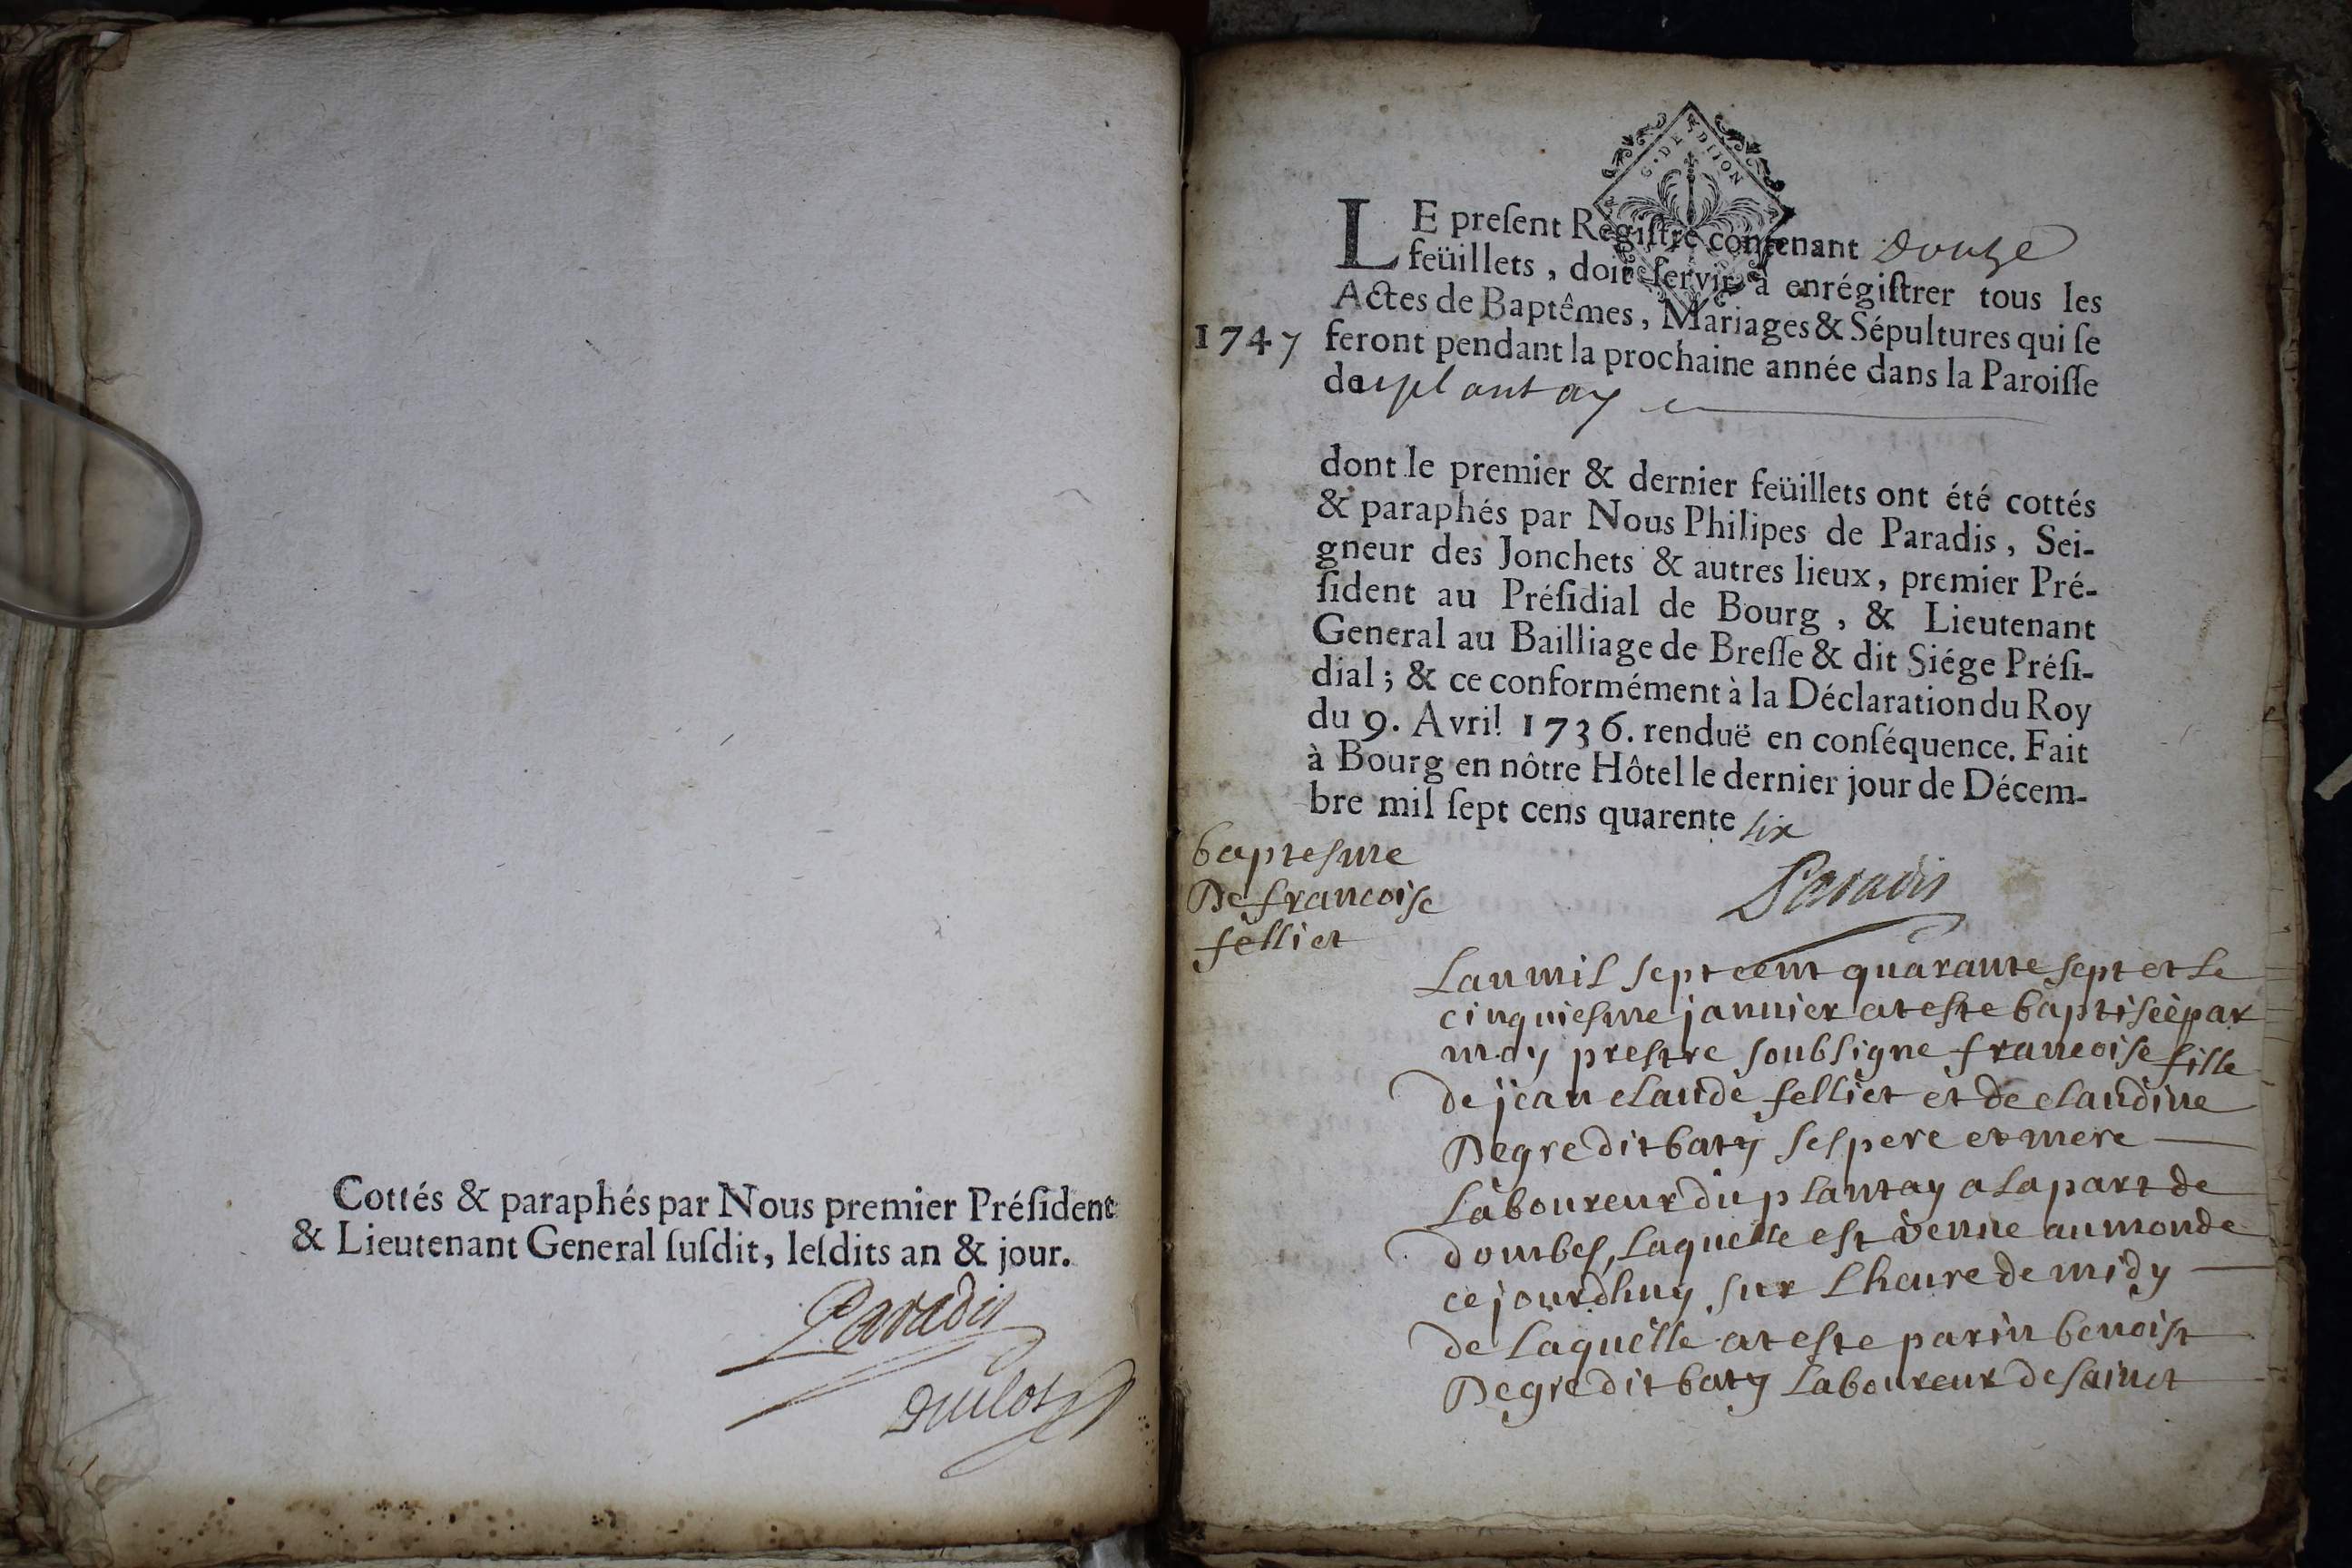 Cottés & paraphés par Nous premier Préſident
& Lieutenant General ſuſdit, leſdits an & jour.
Paradis
G. DE DIJON
LE preſent Regiſtre contenant douze
feüillets, doit ſervir à enrégiſtrer tous les
Actes de Baptêmes, Mariages & Sépultures qui ſe
1747 feront pendant la prochaine année dans la Paroiſſe
du plantay
dont le premier & dernier feüillets ont été cottés
& paraphés par Nous Philipes de Paradis, Sei-
gneur des Jonchets & autres lieux, premier Pré-
ſident au Préſidial de Bourg, & Lieutenant
General au Bailliage de Breſſe & dit Siége Préſi-
dial; & ce conformément à la Déclaration du Roy
du 9. Avril 1736. renduë en conſéquence. Fait
à Bourg en nôtre Hôtel le dernier jour de Décem-
bre mil ſept cens quarente six
Paradis
baptesme
De francoise
felliet
Lan mil sept cent quarante sept et le
cinquiesme jannier at este baptiseè par
moy prestre soubsigne francoise fille
de jean claude felliet et de claudine
Degre dit baty ses pere et mere
Laboureur du plantay a la part de
dombes, laquelle est venue au monde
ce jourdhuy sur lheure de midy
de laquelle at este parin benoist
Degre dit baty laboureur de sainct